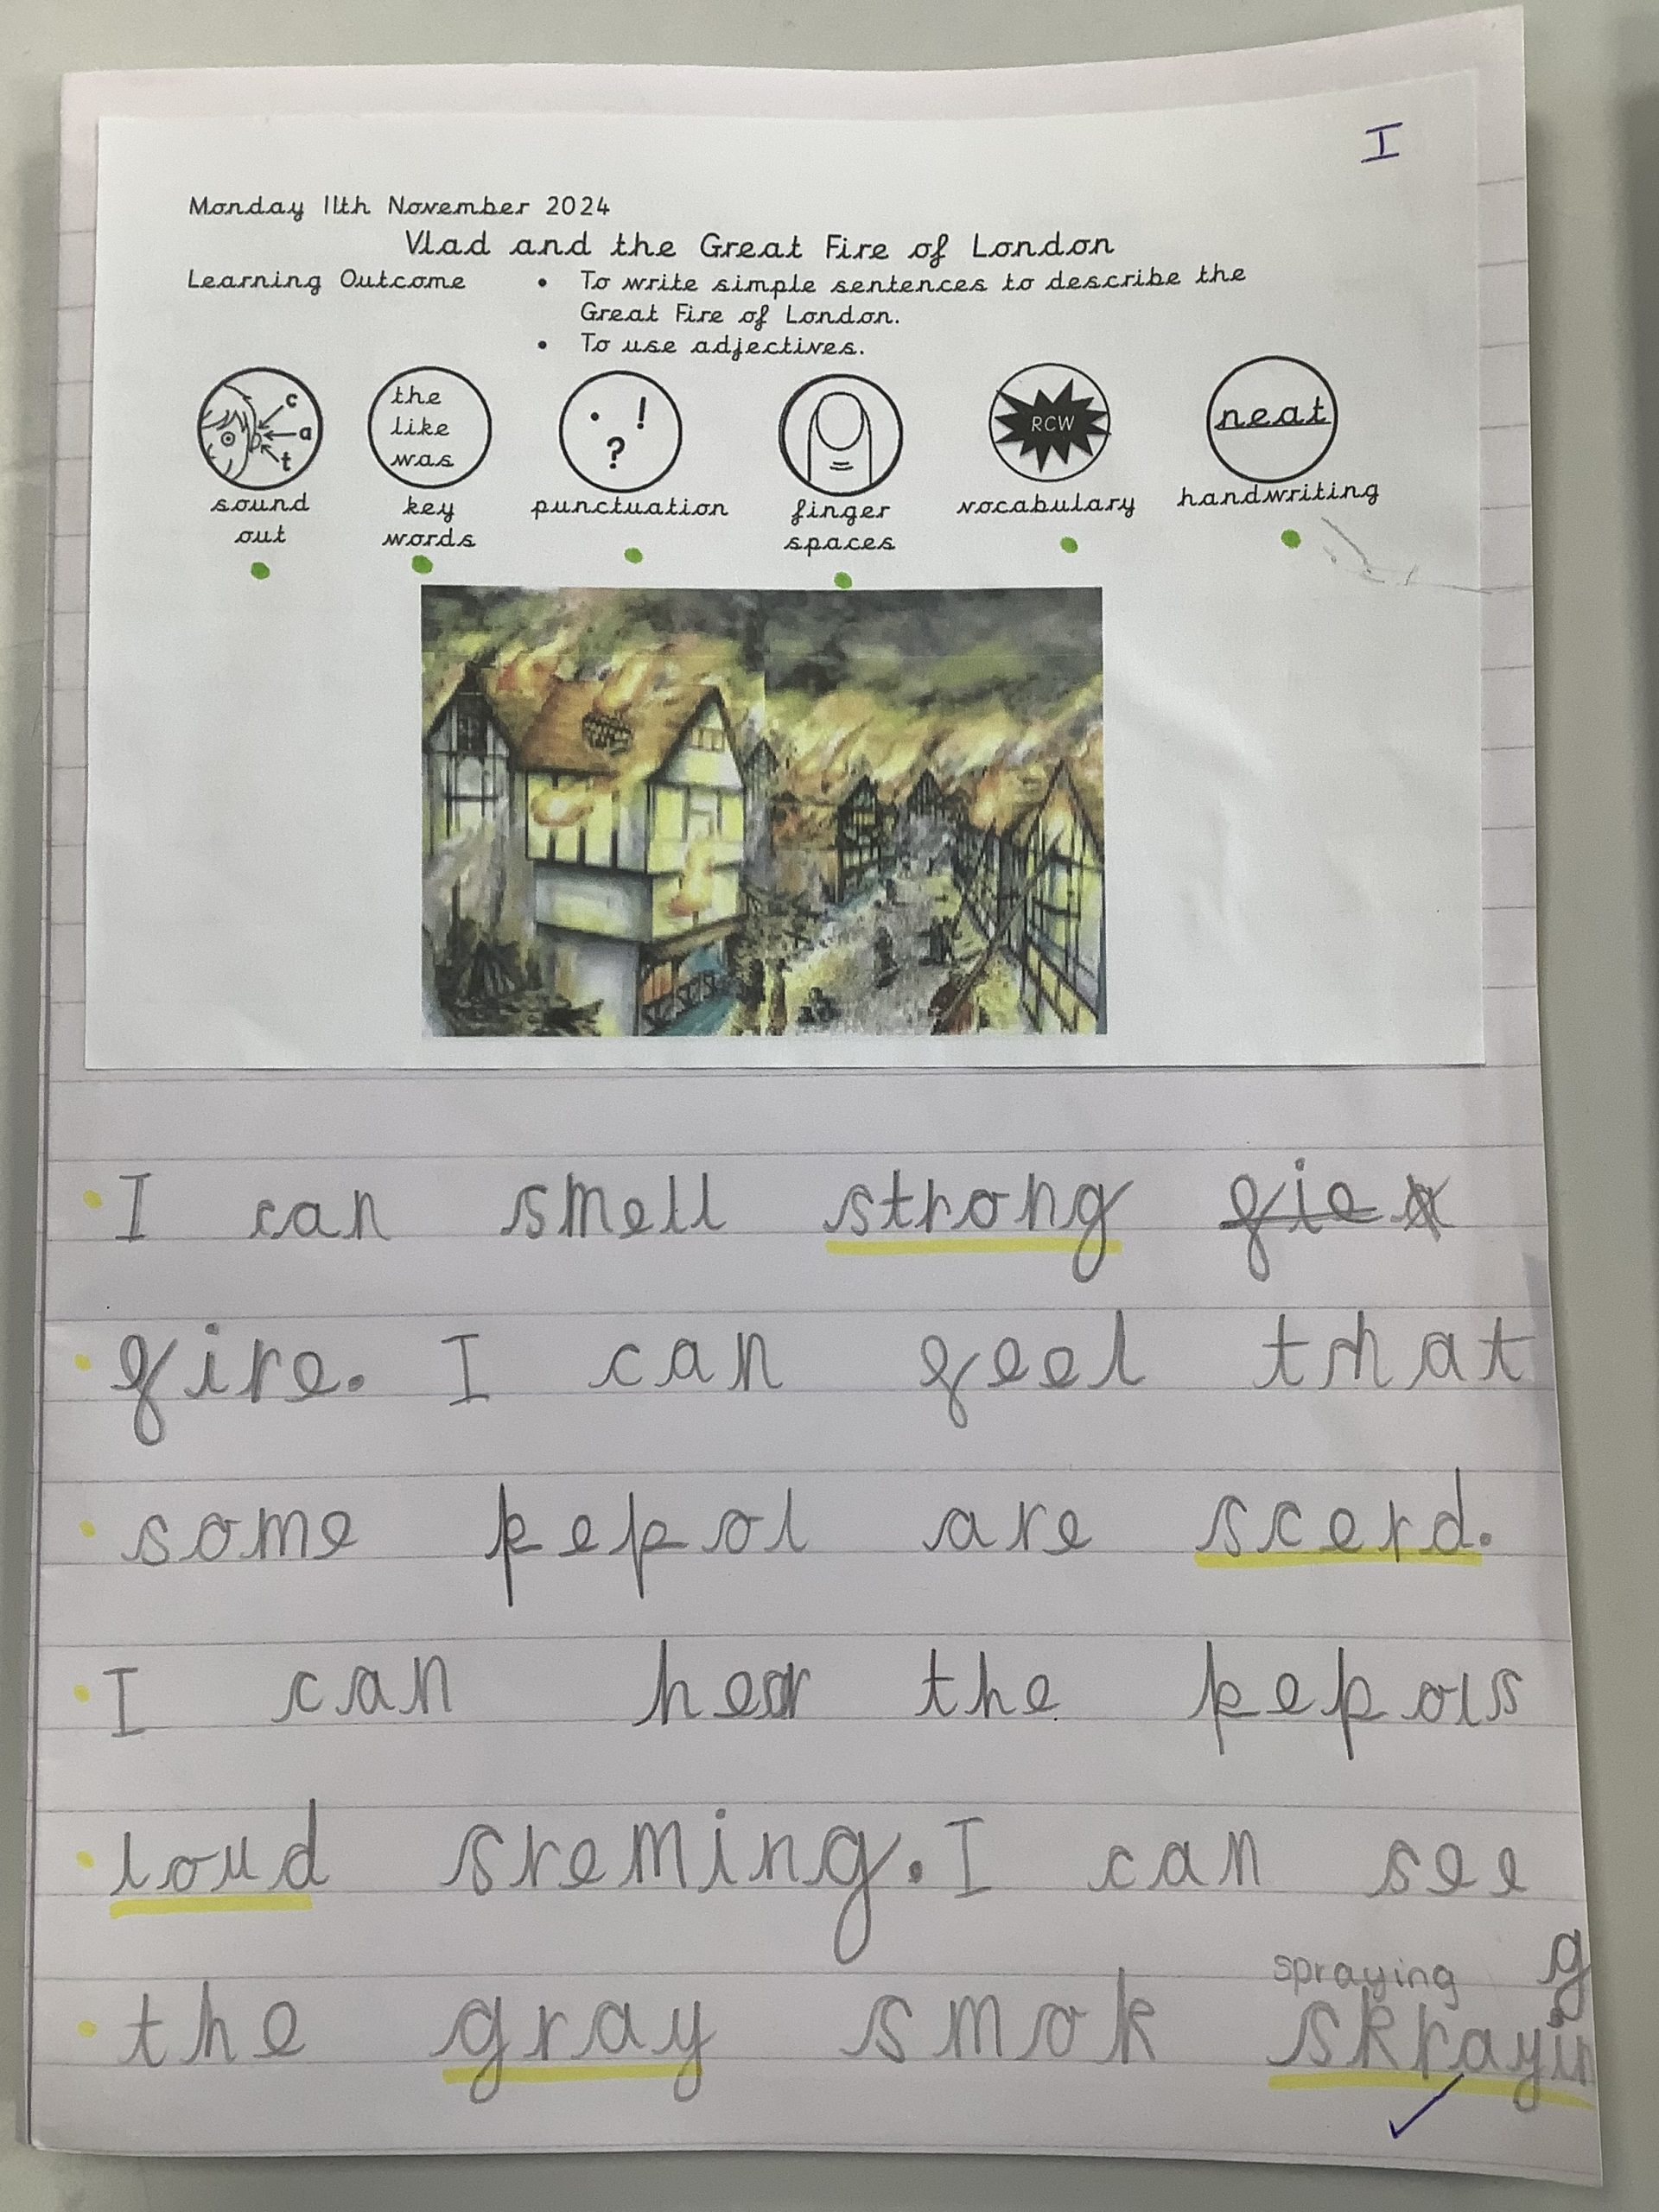 I
Monday 11th November 2024
Vlad and the Great Fire of London
Learning Outcome • To write simple sentences to describe the
Great Fire of London.
• To use adjectives.
c
a
t
the
like
was
. !
?
RCW
neat
sound out
key words
punctuation
finger spaces
vocabulary
handwriting
I can smell strong fie
fire. I can feel that
some pepol are scerd.
I can hear the pepols
loud sreming. I can see
spraying
the gray smok skraying